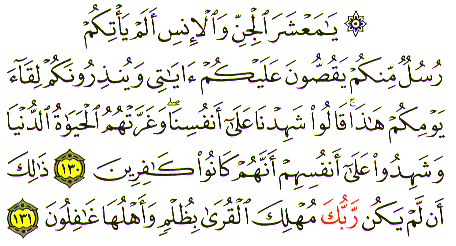 ۞ يَٰمَعْشَرَ ٱلْجِنِّ وَٱلْإِنسِ أَلَمْ يَأْتِكُمْ
رُسُلٌ مِّنكُمْ يَقُصُّونَ عَلَيْكُمْ ءَايَٰتِى وَيُنذِرُونَكُمْ لِقَآءَ
يَوْمِكُمْ هَٰذَا ۚ قَالُوا۟ شَهِدْنَا عَلَىٰٓ أَنفُسِنَا ۖ وَغَرَّتْهُمُ ٱلْحَيَوٰةُ ٱلدُّنْيَا
وَشَهِدُوا۟ عَلَىٰٓ أَنفُسِهِمْ أَنَّهُمْ كَانُوا۟ كَٰفِرِينَ ١٣٠ ذَٰلِكَ
أَن لَّمْ يَكُن رَّبُّكَ مُهْلِكَ ٱلْقُرَىٰ بِظُلْمٍ وَأَهْلُهَا غَٰفِلُونَ ١٣١